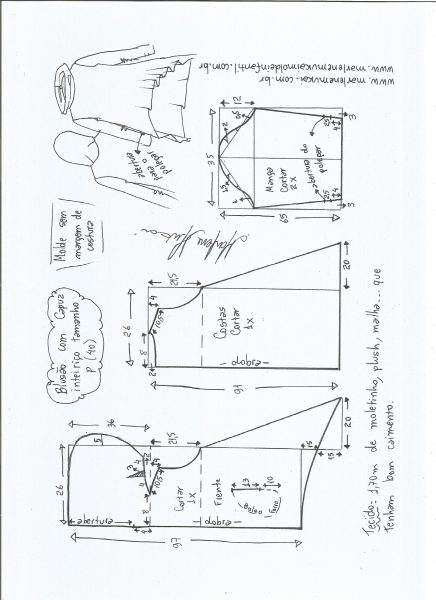 Blusão com Capuz
inteiriço tamanho
P (40)
Molde sem
margem de
costura
abertura
para o
polegar
www.marlenemukai.com.br
www.marlenemukaimoldeinfantil.com.br
36
26
5
abertura
97
2
21,5
10,5
Cortar
1X
Frente
dobra
13
10
bolso
15
15
20
26
8
2
4
21,5
10,5
Costas
Cortar
1X
dobra
91
20
Marlene Mukai
12
35
Manga
Cortar
2X
abertura do
polegar
25
4
3
25
4
3
65
Tecido: 1,70m de moletinho, plush, malha... que
Tenham bom caimento.